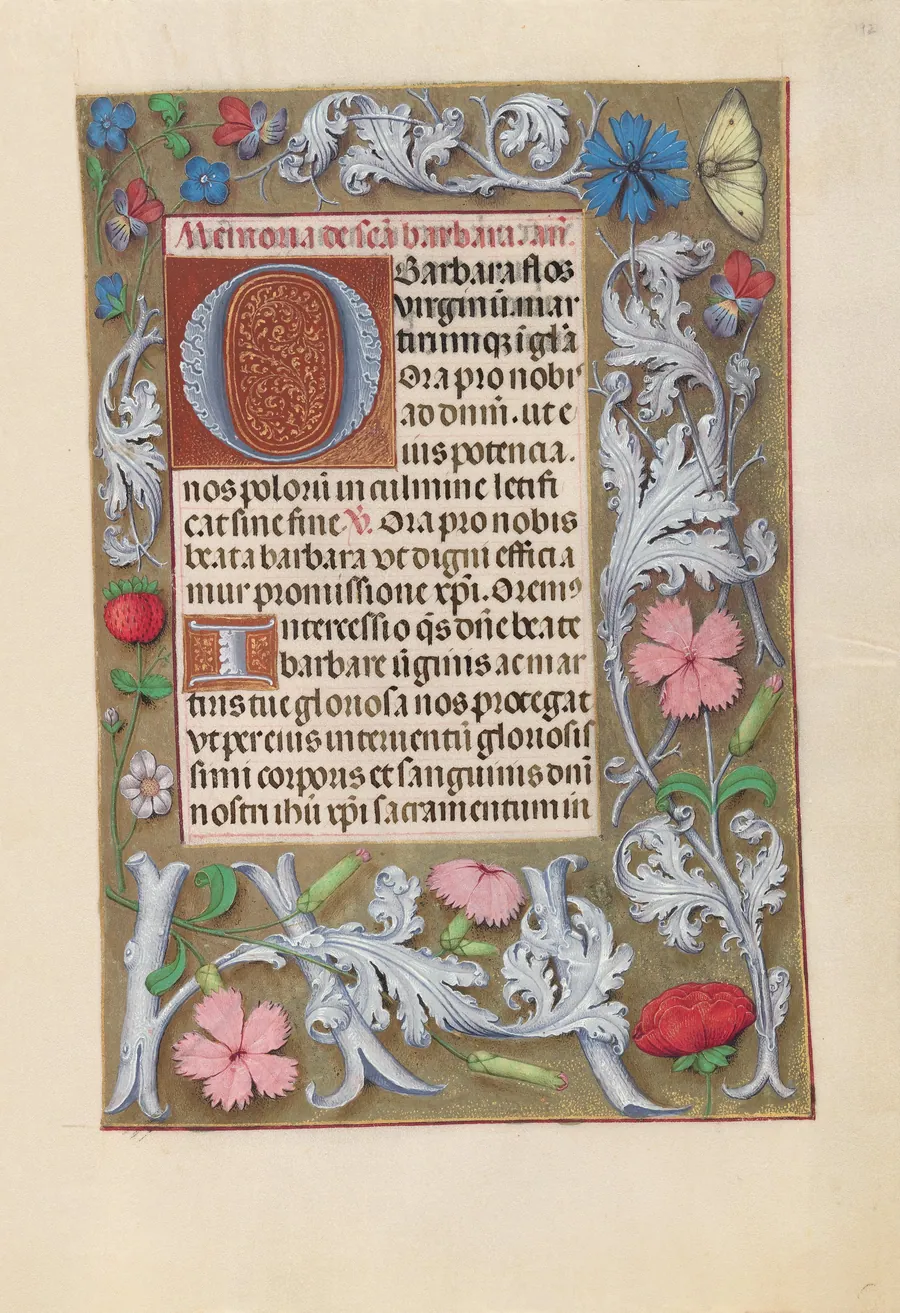 192
Memoria de scā barbara. añ.
O Barbara flos
virginū.mar
tirumqz iglā
Ora pro nobis
ad dnm̄. ut e
ius potencia.
nos polorū in culmine letifi
cat sine fine V̄. Ora pro nobis
beata barbara vt digni efficia
mur promissione xp̄i. Orem9
Intercessio q̄s dn̄e beate
barbare ūginis ac mar
tiris tue gloriosa nos protegat
vt per eius interuentū gloriosis
simi corporis et sanguinis dnī
nostri ihū xp̄i sacramentum in